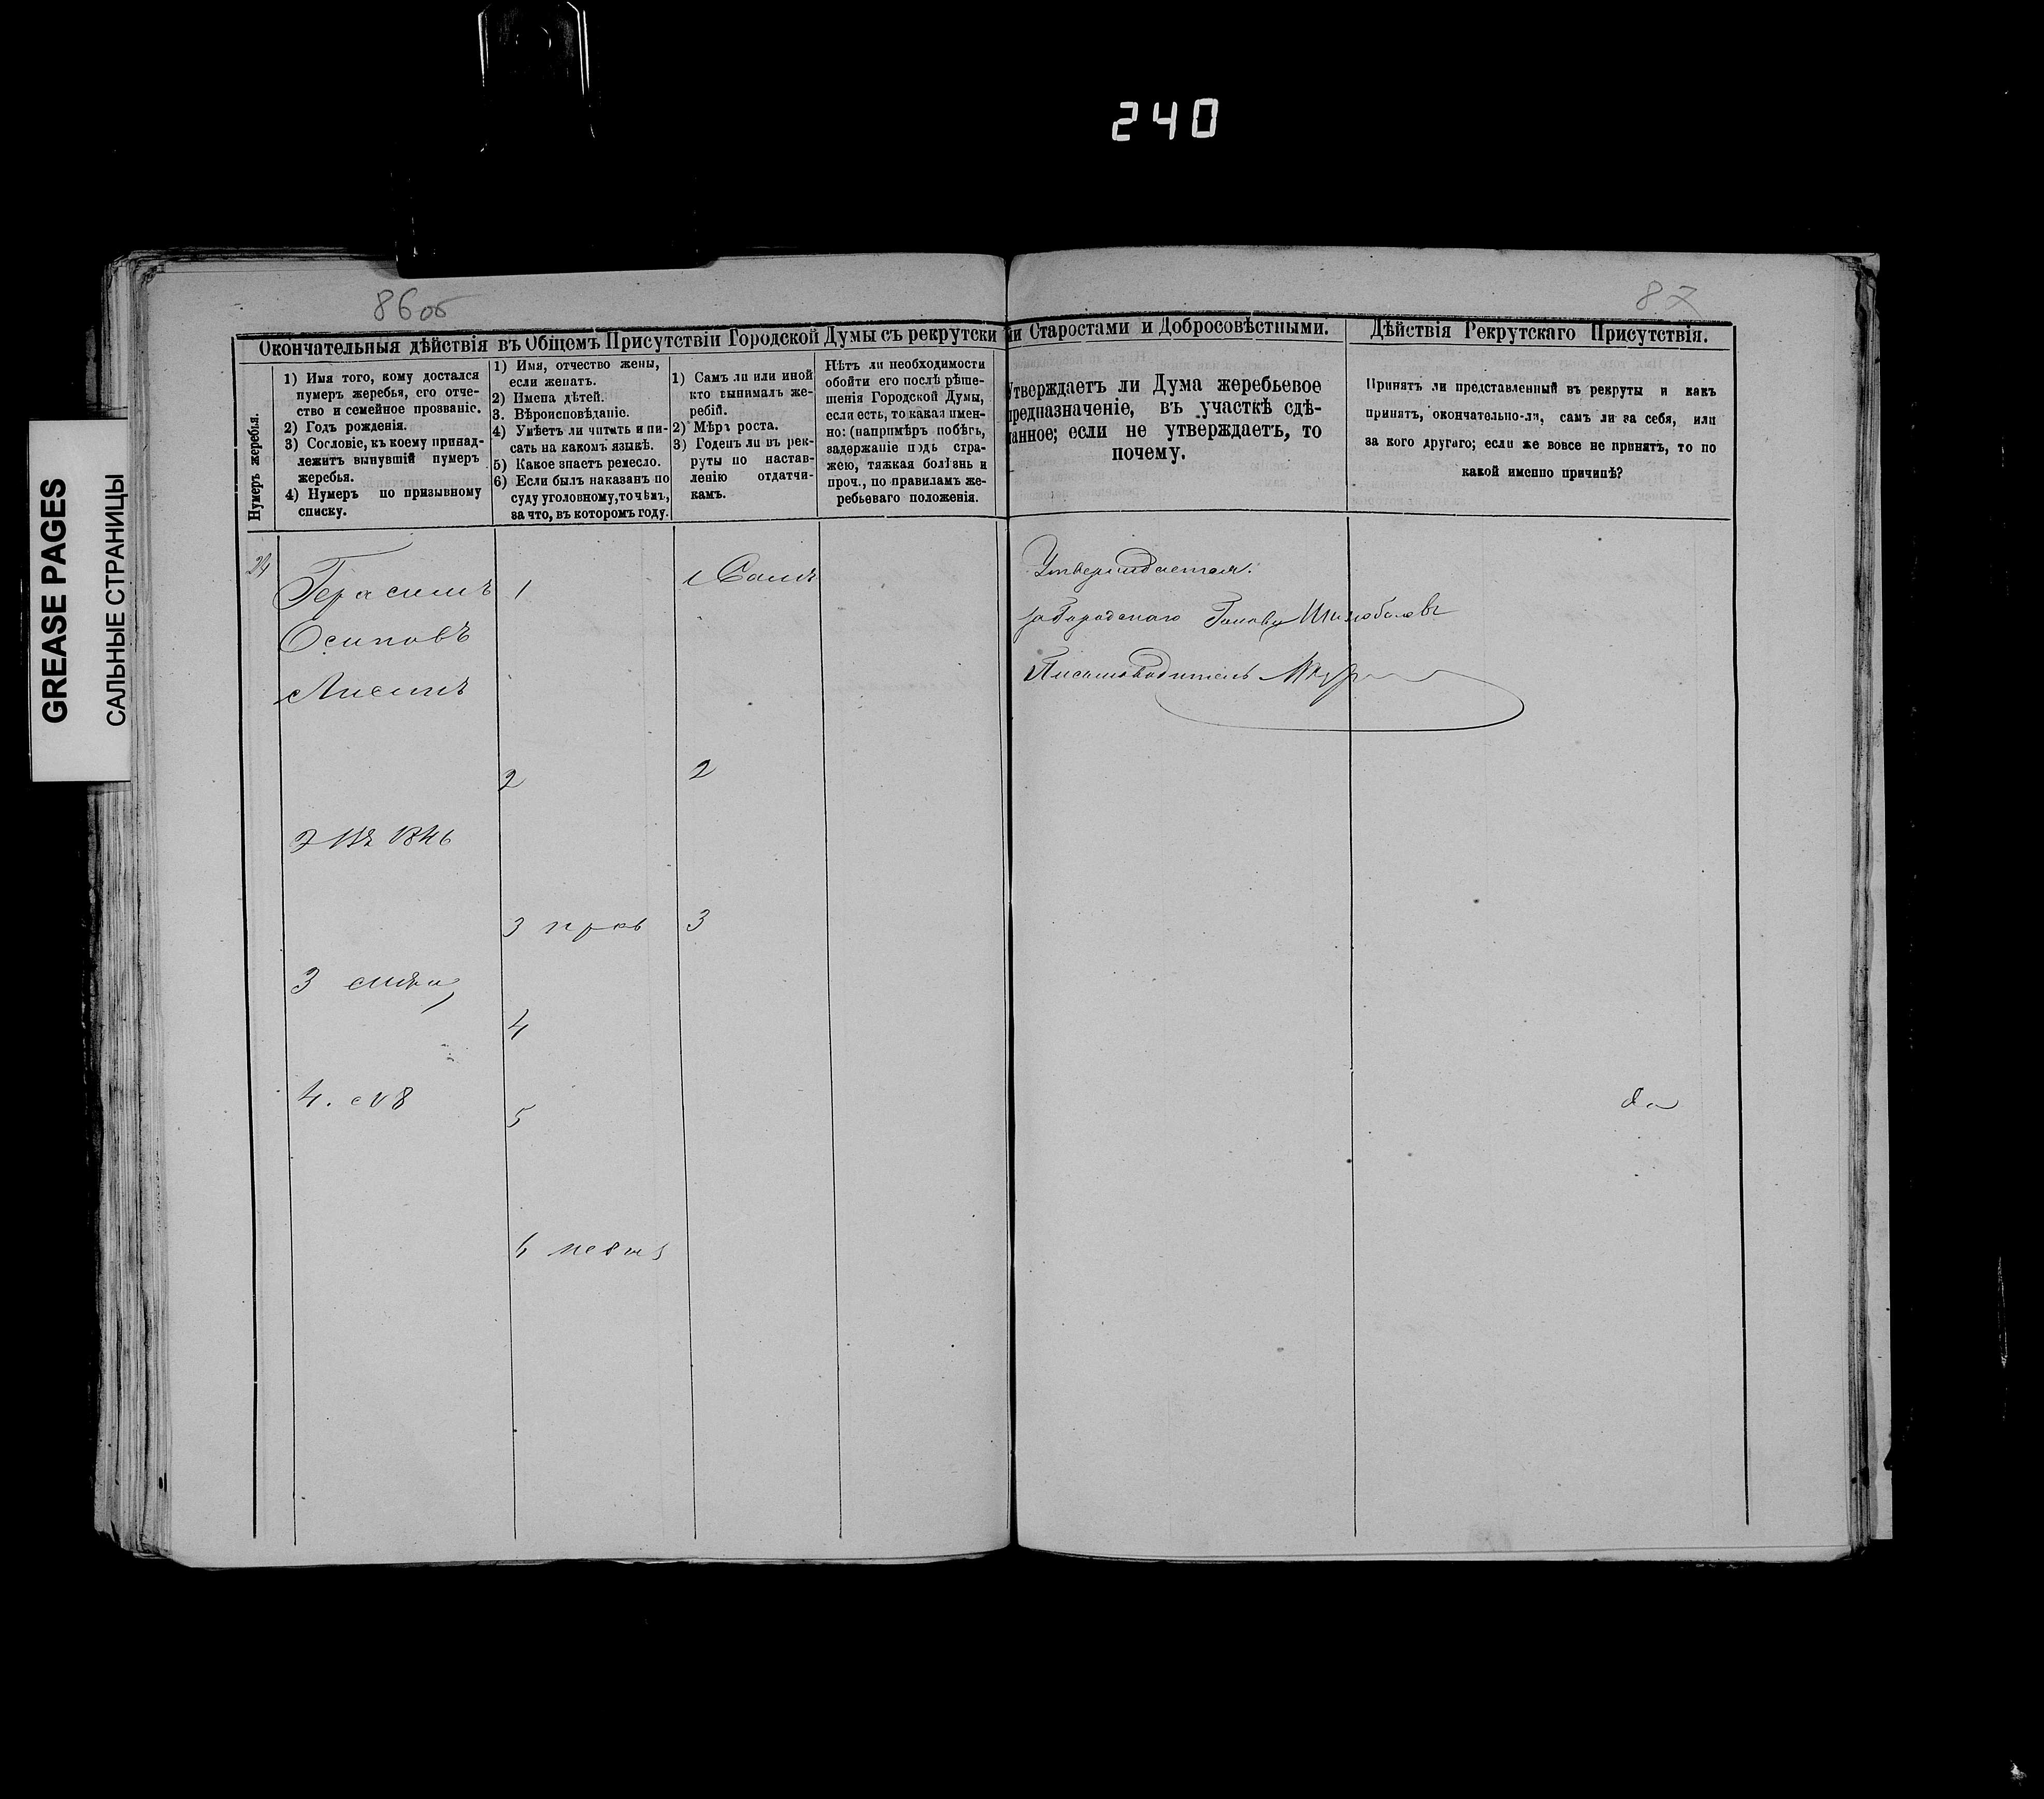 240
GREASE PAGES
САЛЬНЫЕ СТРАНИЦЫ
86об
87
Окончательныя дѣйствія въ Общемъ Присутствіи Городской Думы съ рекрутски
ми Старостами и Добросовѣстными.
Дѣйствія Рекрутскаго Присутствія.
Нумеръ жеребья.
1) Имя того, кому достался
нумеръ жеребья, его отче-
ство и семейное прозваніе.
2) Годъ рожденія.
3) Сословіе, къ коему принад-
лежитъ вынувшій нумеръ
жеребья.
4) Нумеръ по призывному
списку.
1) Имя, отчество жены,
если женатъ.
2) Имена дѣтей.
3. Вѣроисповѣданіе.
4) Умѣетъ ли читать и пи-
сать на какомъ языкѣ.
5) Какое знаетъ ремесло.
6) Если былъ наказанъ по
суду уголовному, то чѣмъ,
за что, въ которомъ году.
1) Самъ ли или иной
кто вынималъ же-
ребій.
2) Мѣра роста.
3) Годенъ ли въ рек-
руты по настав-
ленію отдатчи-
камъ.
Нѣтъ ли необходимости
обойти его послѣ рѣше-
шенія Городской Думы,
если есть, то какая имен-
но: (напримѣръ побѣгъ,
задержаніе подъ стра-
жею, тяжкая болѣзнь и
проч., по правиламъ же-
ребьеваго положенія.
Утверждаетъ ли Дума жеребьевое
предназначеніе, въ участкѣ сдѣ-
ланное; если не утверждаетъ, то
почему.
Принятъ ли представленный въ рекруты и какъ
принятъ, окончательно-ли, самъ ли за себя, или
за кого другаго; если же вовсе не принятъ, то по
какой именно причинѣ?
24
Герасимъ
Осиповъ
1
1 Самъ
Утверждается.
за Городскаго Голову
Письмоводитель
2
2
2 1846
3 прав
3
3
4
4. №8
5
да
6